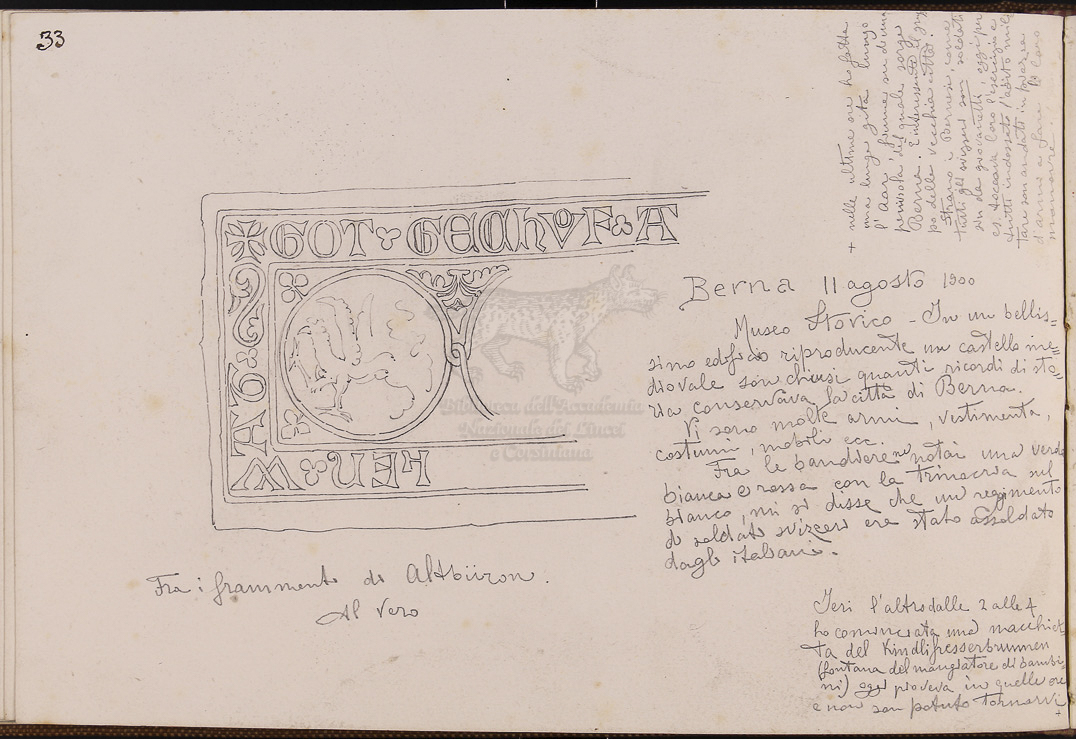 33
GOT GECHUF A
MAG S
HEU W
Berna 11 agosto 1900
Museo Storico - In un bellis=
simo edificio riproducente un castello me=
diovale son chiusi quanti ricordi di sto=
ria conservava la città di Berna.
Vi sono molte armi, vestimenta,
costumi, mobili ecc.
Fra le bandiere notai una verde
bianca e rossa con la trinacria sul
bianco, mi si disse che un regimento
di soldati svizzeri era stato assoldato
dagli italiani.
Fra i frammenti di Altbüron.
Al vero
Ieri l'altro dalle 2 alle 4
ho cominciata una macchiet
ta del Kindlifresserbrunnen
(fontana del mangiatore di bambi=
ni) oggi pioveva in quelle ore
e non son potuto tornarvi
+
+ nelle ultime ore ho fatta
una lunga gita lungo
l'Aar, fiume su di una
penisola del quale sorge
Berna. E interessante il grup
po della vecchia città
Strano i Bernesi, come
tutti gli svizzeri son soldati
sin da giovanetti, oggi per
es. toccava loro l'esercizio e
tutti indossato l'abito mili
tare son andati in piazza
d'armi a fare le loro
manovre.
Biblioteca dell'Accademia
Nazionale dei Lincei
e Corsiniana